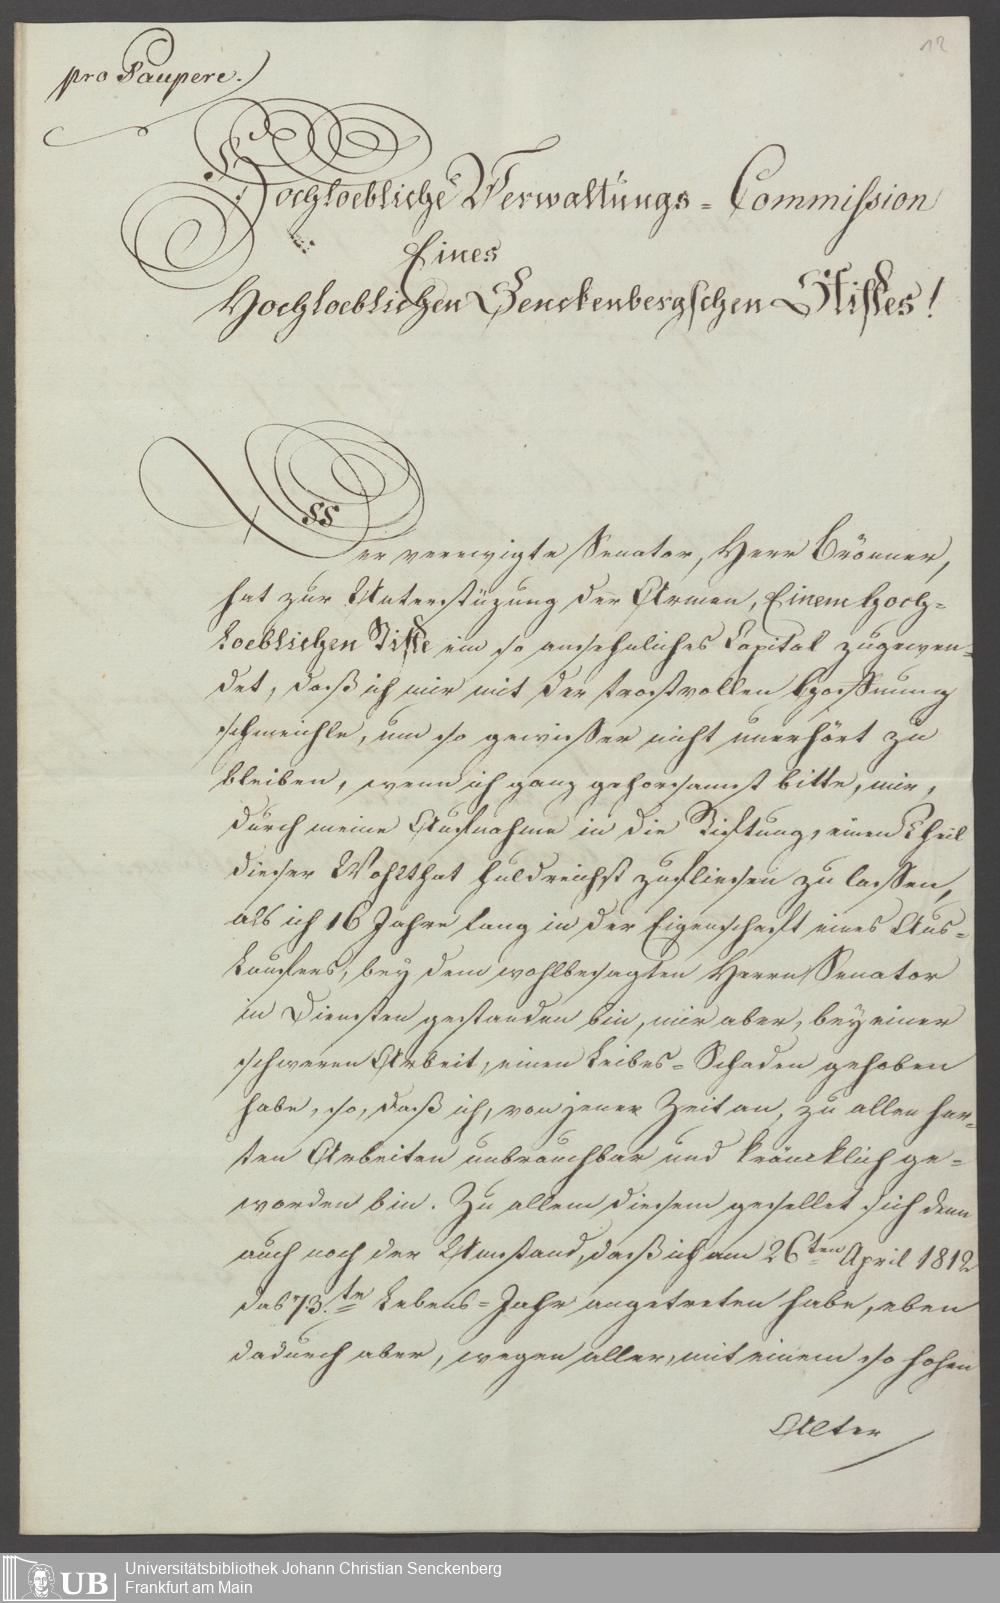 12
pro Paupere.
Hochloebliche Verwaltungs-Commission
Eines
Hochloeblichen Senckenbergschen Stiftes!
Der verewigte Senator, Herr Brönner,
hat zur Unterstüzung der Armen, Einem Hoch-
loeblichen Stifte ein so ansehnliches Capital zugewen-
det, daß ich mir mit der trostvollen Hoffnung
schmeichle, um so gewisser nicht unerhört zu
bleiben, wenn ich ganz gehorsamst bitte, mir,
durch meine Aufnahme in die Stiftung, einen Theil
dieser Wohlthat huldreichst zufliesen zu lassen,
als ich 16 Jahre lang in der Eigenschaft eines Aus-
laufers, bey dem wohlbesagten Herrn Senator
in Diensten gestanden bin, mir aber, bey einer
schweren Arbeit, einen Leibes-Schaden gehoben
habe, so, daß ich, von jener Zeit an, zu allen har-
ten Arbeiten unbrauchbar und kräncklich ge-
worden bin. Zu allem diesem gesellet sich denn
auch noch der Umstand, daß ich am 26ten April 1812
das 73.te Lebens-Jahr angetreten habe, eben
dadurch aber, wegen aller, mit einem so hohen
Alter
UB
Universitätsbibliothek Johann Christian Senckenberg
Frankfurt am Main